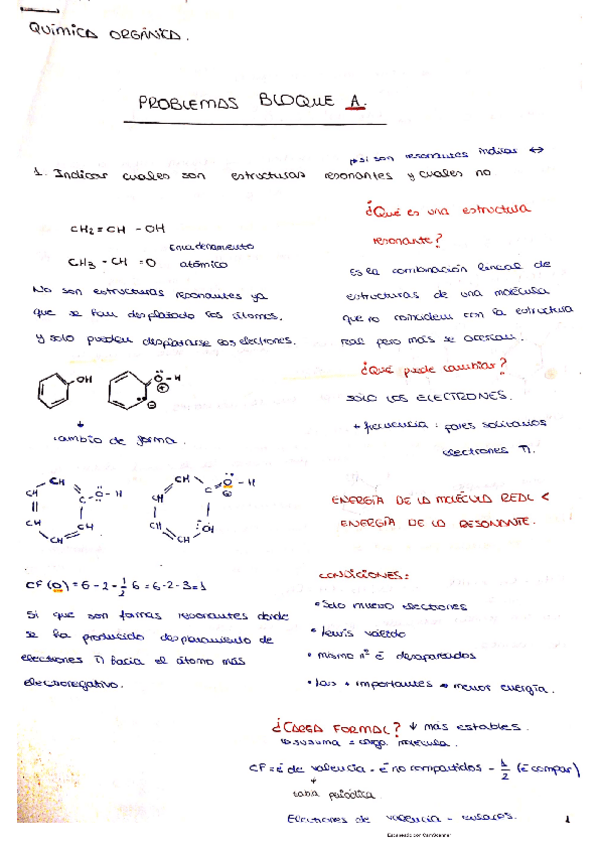 QUÍMICA ORGÁNICA.
PROBLEMAS BLOQUE A.
si son resonantes indicar ↔
1. Indicar cuales son estructuras resonantes y cuales no
CH2=CH-OH
CH3-CH=O
Encadenamiento
atómico
No son estructuras resonantes ya
que se han desplazado los átomos.
y solo pueden desplazarse los electrones.
OH
O-H
⊕
⊖
↓
cambio de forma.
CH
CH
CH
CH
CH
C-O-H
CH
CH
CH
CH
C=O-H
⊕
CF(O) = 6-2-1/2 6 = 6-2-3=1
Si que son formas resonantes donde
se ha producido desplazamiento de
electrones π hacia el átomo más
electronegativo.
¿Qué es una estructura
resonante?
Es la combinación lineal de
estructuras de una molécula
que no coinciden con la estructura
real pero más se acercan.
¿Qué puede cambiar?
SÓLO LOS ELECTRONES.
+ frecuencia: pares solitarios
electrones π.
ENERGÍA DE LA MOLÉCULA REAL <
ENERGÍA DE LA RESONANTE.
CONDICIONES:
• Solo muevo electrones
• Lewis válido
• mismo nº ē desapareados
• Las + importantes → menor energía.
¿CARGA FORMAL? ↓ más estables.
su suma = carga molécula.
CF = ē de valencia - ē no compartidos - 1/2 (ē compar)
↓
tabla periódica
Electrones de valencia - enlaces.
1
Escaneado con CamScanner